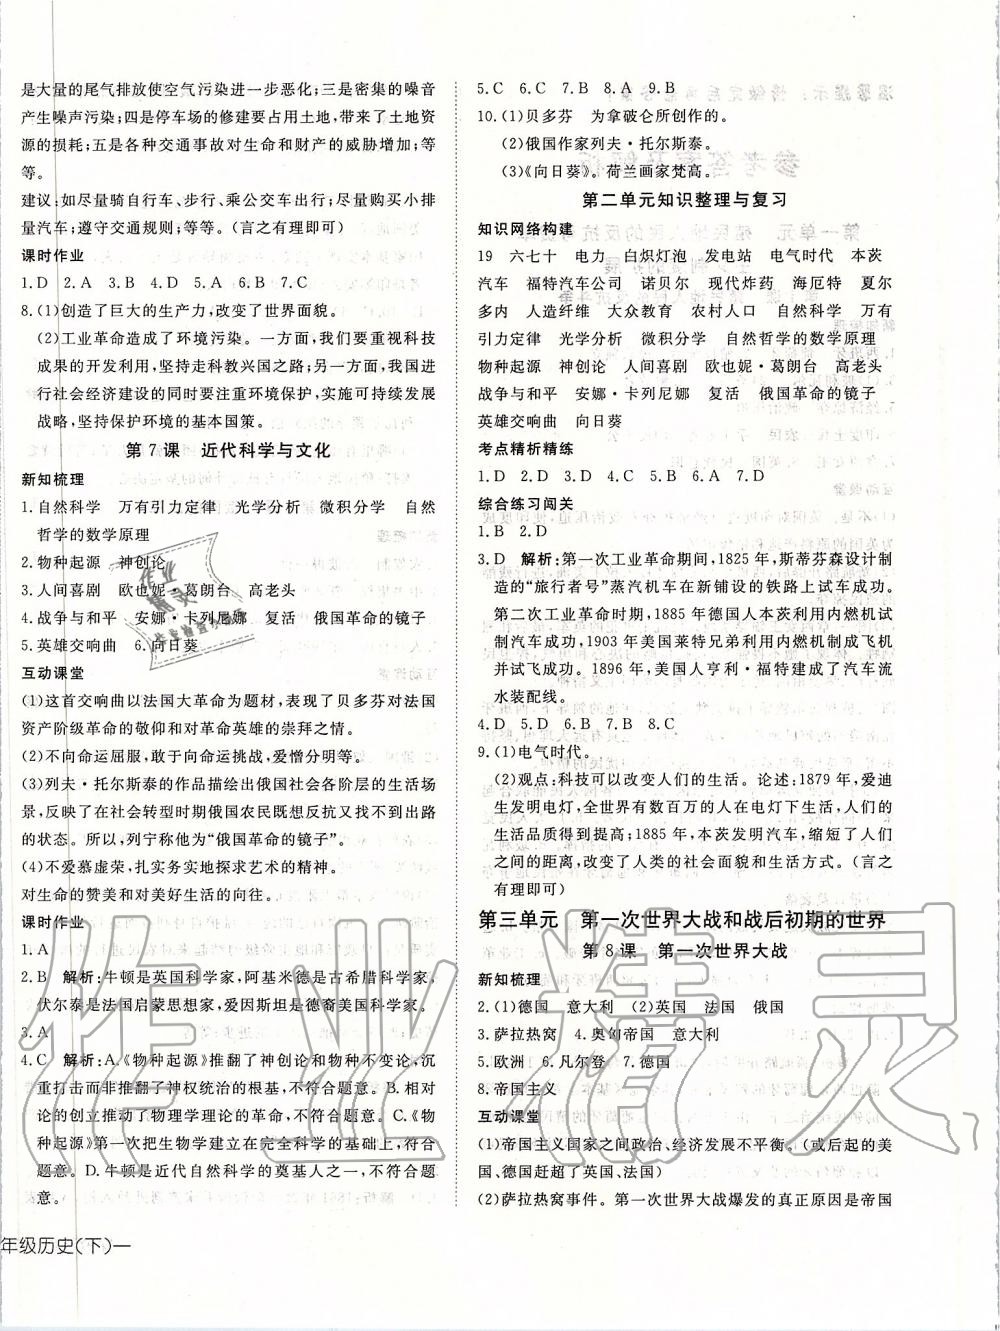 是大量的尾气排放使空气污染进一步恶化;三是车辆的噪音
产生噪声污染;四是停车场的修建要占用土地,带来了土地资
源的损耗;五是各种交通事故对生命和财产的威胁增加;等
等。
建议:如尽量骑自行车、步行、乘坐公交车出行;尽量购买小排
量汽车;遵守交通规则;等等。(言之有理即可)
课时作业
1.D 2.A 3.D 4.A 5.A 6.B 7.C
8.(1)创造了巨大的生产力,改变了世界面貌。
(2)工业革命造成了环境污染。一方面,我们要重视科技
成果的开发利用,坚持走科教兴国之路;另一方面,我国进
行社会经济建设的同时要注重环境保护,实施可持续发展
战略,坚持保护环境的基本国策。
第7课 近代科学与文化
新知梳理
1.自然科学 万有引力定律 光学分析 微积分学 自然
哲学的数学原理
2.物种起源 神创论
3.人间喜剧 欧也妮·葛朗台 高老头
4.战争与和平 安娜·卡列尼娜 复活 俄国革命的镜子
5.英雄交响曲 6.向日葵
互动课堂
(1)这首交响曲以法国大革命为题材,表现了贝多芬对法国
资产阶级革命的敬仰和对革命英雄的崇拜之情。
(2)不向命运屈服,敢于向命运挑战,爱憎分明等。
(3)列夫·托尔斯泰的作品描绘出俄国社会各阶层的生活场
景,反映了在社会转型时期俄国农民既想反抗又找不到出路
的状态。所以,列宁称他为“俄国革命的镜子”。
(4)不爱慕虚荣,扎实务实地探求艺术的精神。
对生命的赞美和对美好生活的向往。
课时作业
1.A
2.B 解析:牛顿是英国科学家,阿基米德是古希腊科学家,
伏尔泰是法国启蒙思想家,爱因斯坦是德裔美国科学家。
3.A
4.C 解析:A.《物种起源》推翻了神创论和物种不变论,沉
重打击而非推翻了神权统治的根基,不符合题意。B.相对
论的创立推动了物理学理论的革命,不符合题意。C.《物
种起源》第一次把生物学建立在完全科学的基础上,符合
题意。D.牛顿是近代自然科学的奠基人之一,不符合题
意。
年级历史(下)—
5.C 6.C 7.B 8.A 9.B
10.(1)贝多芬 为拿破仑所创作的。
(2)俄国作家列夫·托尔斯泰。
(3)《向日葵》。荷兰画家梵高。
第二单元知识整理与复习
知识网络构建
19 六七十 电力 白炽灯泡 发电站 电气时代 本茨
汽车 福特汽车公司 诺贝尔 现代炸药 海厄特 夏尔
多内 人造纤维 大众教育 农村人口 自然科学 万有
引力定律 光学分析 微积分学 自然哲学的数学原理
物种起源 神创论 人间喜剧 欧也妮·葛朗台 高老头
战争与和平 安娜·卡列尼娜 复活 俄国革命的镜子
英雄交响曲 向日葵
考点精析精练
1.D 2.D 3.B 4.C 5.D 6.A 7.D
综合练习闯关
1.B 2.D
3.D 解析:第一次工业革命期间,1825年,斯蒂芬森设计制
造的“旅行者号”蒸汽机车在新铺设的铁路上试车成功。
第二次工业革命时期,1885年德国人本茨利用内燃机试
制汽车成功,1903年美国莱特兄弟利用内燃机制成飞机
并试飞成功。1896年,美国人亨利·福特建成了汽车流
水装配线。
4.D 5.D 6.B 7.B 8.C
9.(1)电气时代。
(2)观点:科技可以改变人们的生活。论述:1879年,爱迪
生发明电灯,全世界有数百万的人在电灯下生活,人们的
生活品质得到提高;1885年,本茨发明汽车,缩短了人们
之间的距离,改变了人类的社会面貌和生活方式。(言之
有理即可)
第三单元 第一次世界大战和战后初期的世界
第8课 第一次世界大战
新知梳理
2.(1)德国 意大利 (2)英国 法国 俄国
3.萨拉热窝 4.奥匈帝国 意大利
5.欧洲 6.凡尔登 7.德国
8.帝国主义
互动课堂
(1)帝国主义国家之间政治、经济发展不平衡。(或后起的美
国、德国赶超了英国、法国)
(2)萨拉热窝事件。第一次世界大战爆发的真正原因是帝国
作业精灵